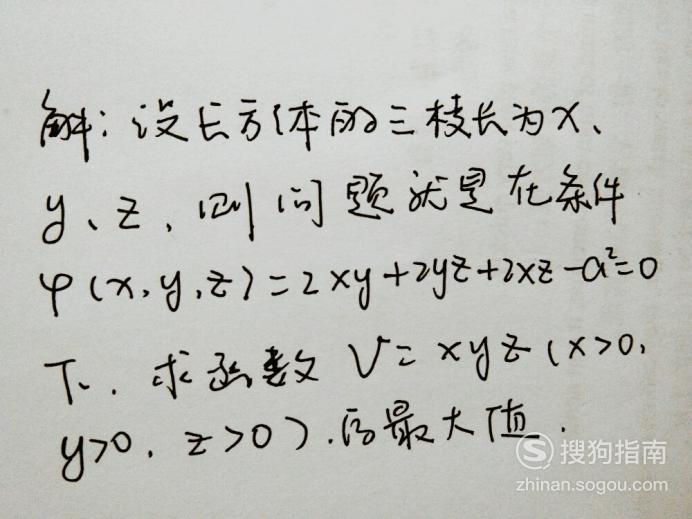 解:设长方体的三棱长为x、
y、z,则问题就是在条件
φ(x,y,z)=2xy+2yz+2xz-a²=0
下,求函数 V=xyz(x>0,
y>0,z>0).的最大值.
S 搜狗指南
zhinan.sogou.com